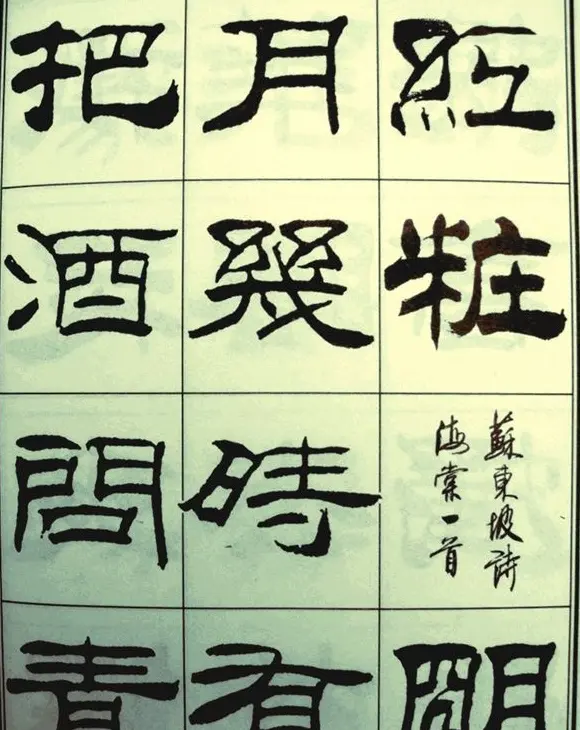 紅粧
蘇東坡詩
海棠一首
朙
月幾時有
把酒問青